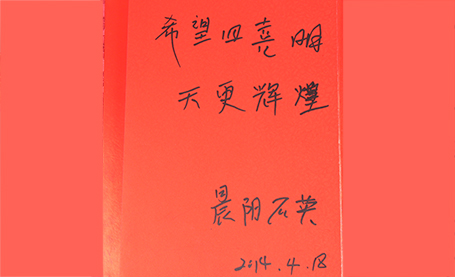 希望明
天更辉煌
晨阳石英
2014.4.18